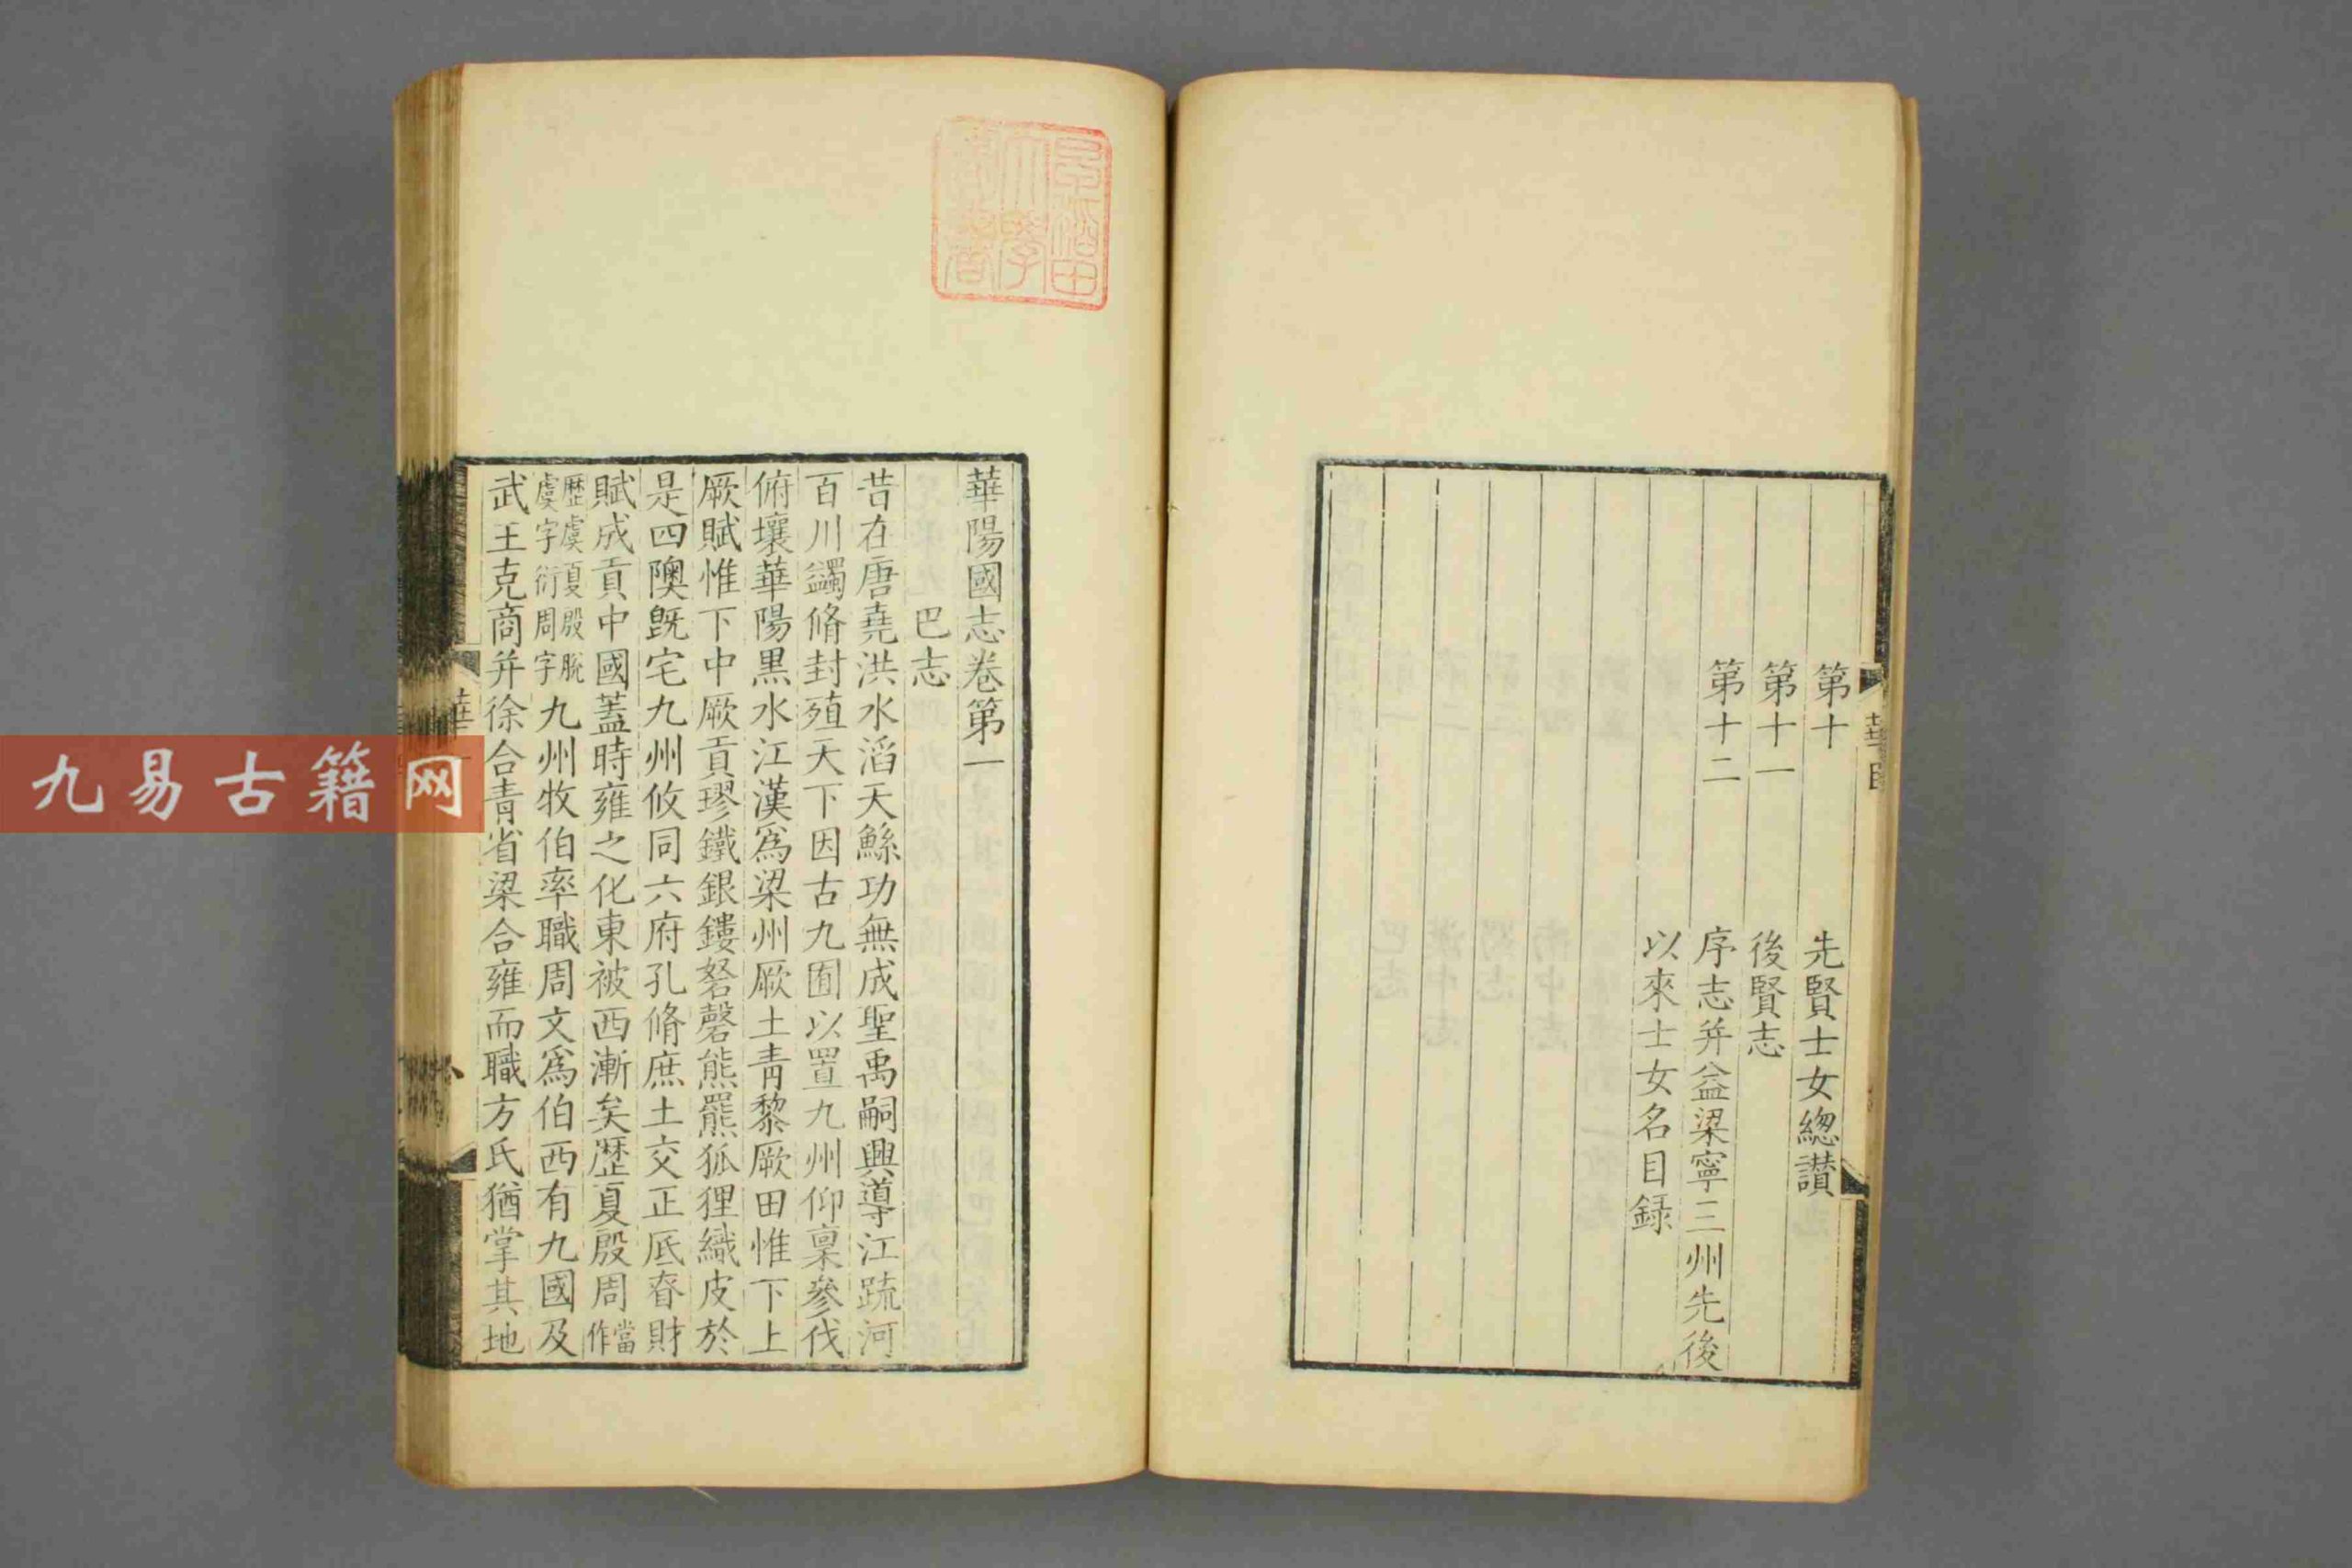 第十 先賢士女緫讃
第十一 後賢志
第十二 序志并益梁寧三州先後
以來士女名目録
華陽國志卷第一
巴志
昔在唐堯洪水滔天鯀功無成聖禹嗣興導江䟽河
百川蠲脩封殖天下因古九囿以置九州仰稟參伐
俯壤華陽黑水江漢爲梁州厥土青黎厥田惟下上
厥賦惟下中厥貢璆鐵銀鏤砮磬熊羆狐狸織皮於
是四隩旣宅九州攸同六府孔脩庶土交正厎眘財
賦成貢中國蓋時雍之化東被西漸矣歴夏殷周當作
歴虞夏殷脫
虞字衍周字
九州牧伯率職周文爲伯西有九國及
武王克商并徐合青省梁合雍而職方氏猶掌其地
早稻田大學
圖書
九易古籍网